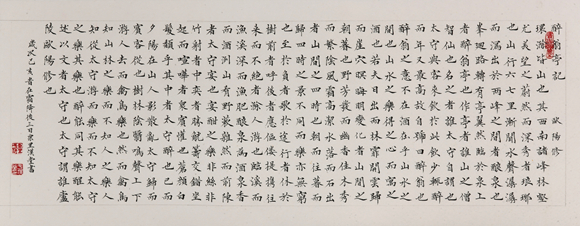 醉翁亭記 歐陽修
環滁皆山也其西南諸峰林壑
尤美望之蔚然而深秀者瑯琊
也山行六七里漸聞水聲潺潺
而瀉出於兩峰之間者釀泉也
峯迴路轉有亭翼然臨於泉上
者醉翁亭也作亭者誰山之僧
智仙也名之者誰太守自謂也
太守與客來飲於此飲少輒醉
而年又最高故自號曰醉翁也
醉翁之意不在酒在乎山水之
間也山水之樂得之心而寓之
酒也若夫日出而林霏開雲歸
而巖穴暝晦明變化者山間之
朝暮也野芳發而幽香佳木秀
而繁陰風霜高潔水落而石出
者山間之四時也朝而往暮而
歸四時之景不同而樂亦無窮
也至於負者歌於途行者休於
樹前者呼後者應傴僂提攜往
來而不絕者滁人遊也臨溪而
漁溪深而魚肥釀泉為酒泉香
而酒洌山肴野蔌雜然而前陳
者太守宴也宴酣之樂非絲非
竹射者中奕者勝觥籌交錯坐
起而諠譁者眾賓懽也蒼顏白
髮頹乎其中者太守醉也已而
夕陽在山人影散亂太守歸而
賓客從也樹林陰翳鳴聲上下
游人去而禽鳥樂也然而禽鳥
知山林之樂而不知人之樂人
知從太守游而樂而不知太守
之樂其樂也醉能同其樂醒能
述以文者太守也太守謂誰廬
陵歐陽修也
歲次己亥在霜降後三日書